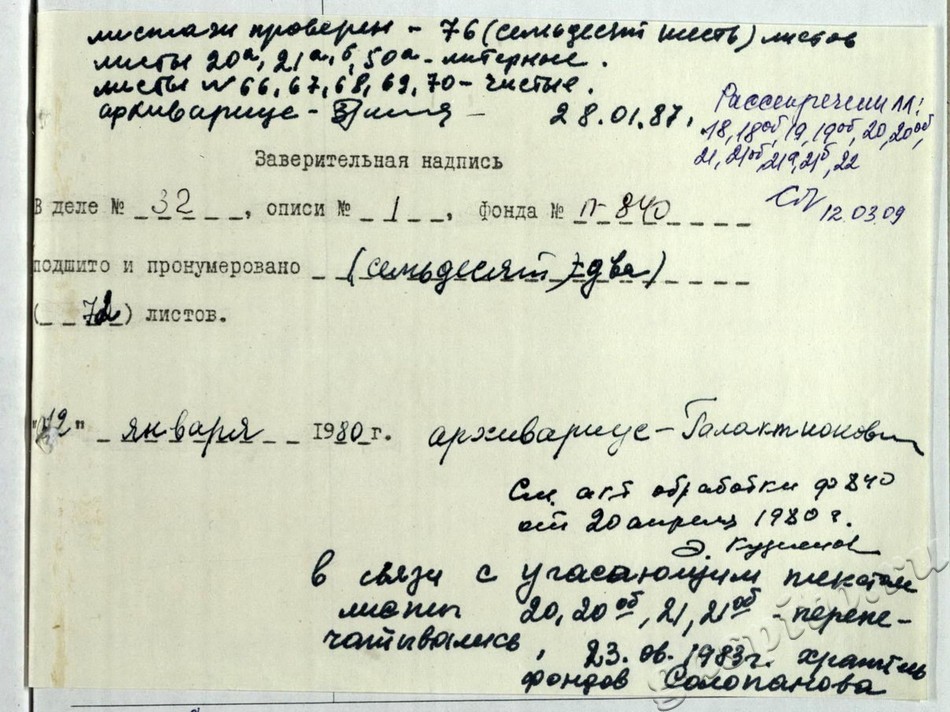 листаж проверен - 76 (семьдесят шесть) листов
листы 20а, 21а, б, 50а - литерные.
листы № 66, 67, 68, 69, 70 - чистые.
архивариус - 28.01.87.
Рассекречены лл:
18, 18об, 19, 19об, 20, 20об,
21, 21об, 21а, 21б, 22
12.03.09
Заверительная надпись
В деле № 32, описи № 1, фонда № П-840
подшито и пронумеровано (семьдесят два)
(72) листов.
"12" января 1980 г. архивариус - Галактионова
См. акт обработки ф 840
от 20 апреля 1980 г.
В связи с угасающим текстом
листы 20, 20об, 21, 21об - перепе-
чатывались, 23.06.1983г. хранитель
фондов Солопанова